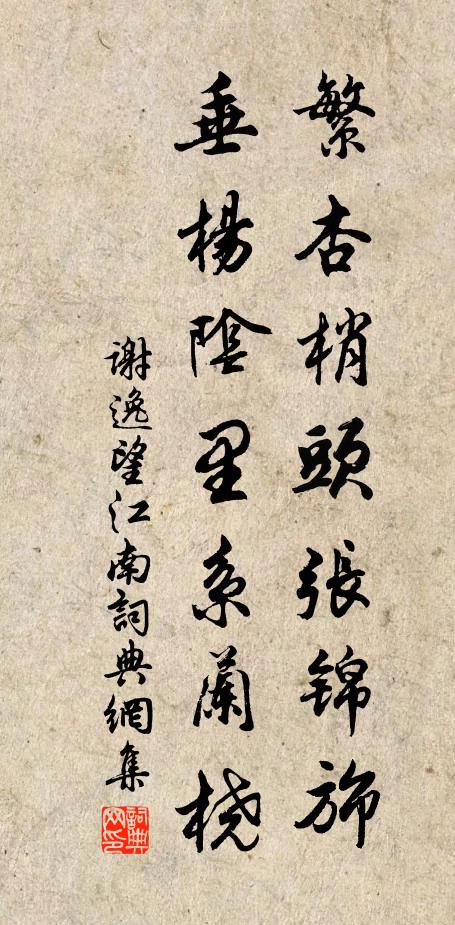 繁杏梢頭張錦旆
垂楊陰里系蘭橈
謝逸望江南詞典網集
詞典網印